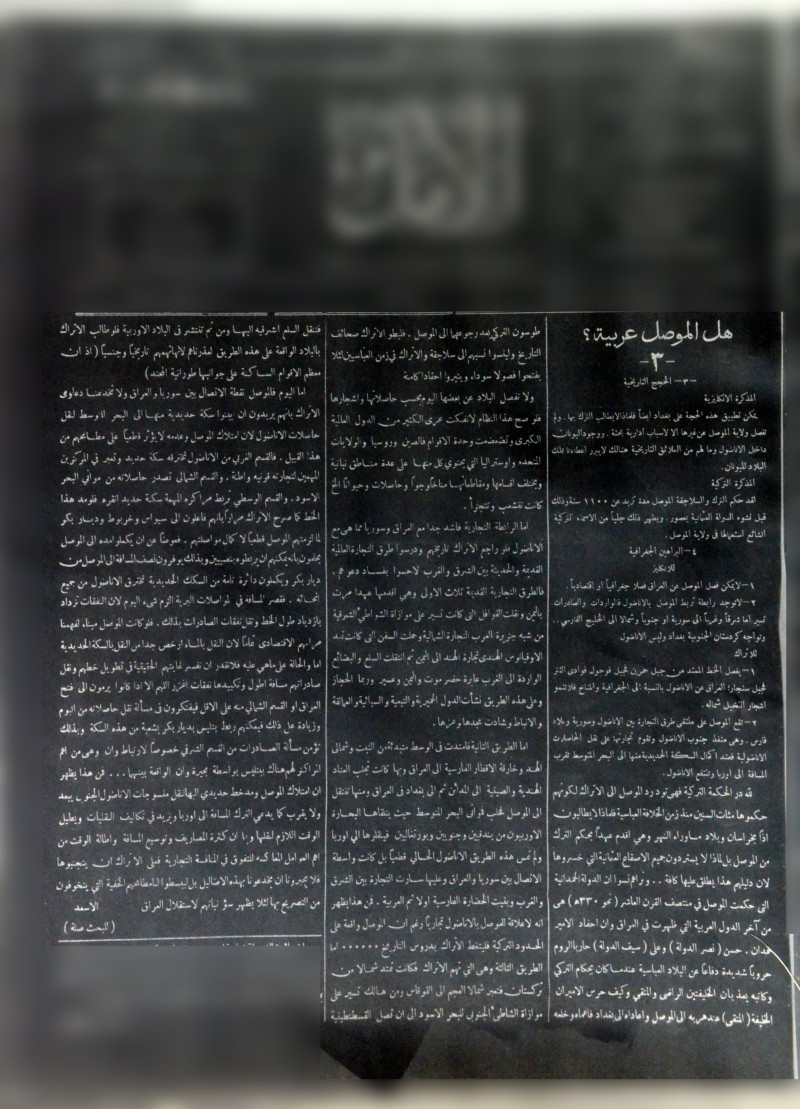 هل الموصل عربية؟
-٣-
-٣- الحجج التاريخية
المذكرة الانكليزية
يمكن تطبيق هذه الحجة على بغداد ايضاً فلماذا لايطالب الترك بها. ولم
تفصل ولاية الموصل عن غيرها الا لاسباب ادارية بحتة. ووجود اليونان
داخل الاناضول وما لهم من العلائق التاريخية هنالك لايبرر اعطاء تلك
البلاد لليونان.
المذكرة التركية
لقد حكم الترك والسلاجقة الموصل مدة تزيد عن ١١٠٠ سنة وذلك
قبل نشوء الدولة العثمانية بعصور. ويظهر ذلك جلياً من الاسماء التركية
الشائع استعمالها في ولاية الموصل.
٤- البراهين الجغرافية
للانكليز
١- لايمكن فصل الموصل عن العراق فصلا جغرافياً او اقتصادياً.
٢- لاتوجد رابطة تربط الموصل بالاناضول فالواردات والصادرات
تسير اما شرقاً وغرباً الى سورية او جنوباً وشمالا الى الخليج الفارسي..
وتواجه كردستان الجنوبية بغداد وليس الاناضول
للاتراك
١- يفصل الخط الممتد من جبل حمرين لجبل فوحول فوادى الثر
لجبل سنجار العراق عن الاناضول بالنسبة الى الجغرافية والمناخ فلاتنمو
اشجار النخيل شماله.
٢- تقع الموصل على ملتقى طرق التجارة بين الاناضول وسورية وبلاد
فارس. وهي منفذ جنوب الاناضول وتقوم تجارتها على نقل الحاصلات
الاناضولية فعند اكمال السكة الحديدية منها الى البحر المتوسط تقرب
المسافة الى اوربا وتنتفع الاناضول.
لله در الحكمة التركية فهي تود رد الموصل الى الاتراك لكونهم
حكموها مئات السنين منذ زمن الخلافة العباسية فلماذا لايطالبون
اذاً بخراسان وبلاد ماوراء النهر وهي اقدم عهداً بحكم الترك
من الموصل بل لماذا لا يستردون جميع الاصقاع العثمانية التي خسروها
لان دليلهم هذا يطلق عليها كافة.. وتراهم نسوا ان الدولة الحمدانية
التى حكمت الموصل في منتصف القرن العاشر (نحو ٣٣٠ هـ) هى
من آخر الدول العربية التي ظهرت في العراق وان احفاد الامير
حمدان. حسن (نصر الدولة) وعلى (سيف الدولة) حاربا الروم
حروباً شديدة دفاعاً عن البلاد العباسية عندما كان بجكام التركي
وكاتبه يعذبان الخليفتين الراضى والمتقي وكيف حرس الاميران
الخليفة (المتقى) عند هربه الى الموصل واعاداه الى بغداد فاعماه وخلعه
طوسون التركي بعد رجوعها الى الموصل. فليطو الاتراك صحائف
التاريخ ولينسوا نسبهم الى سلاجقة والاتراك في زمن العباسيين لئلا
يفتحوا فصولا سوداء ويثيروا احقاداً كامنة
ولا تفصل البلاد عن بعضها اليوم بحسب حاصلاتها واشجارها
فلو صح هذا النظام لانفكت عرى الكثير من الدول العالمية
الكبرى وتضعضعت وحدة الاقوام فالصين وروسيا والولايات
المتحدة واوستراليا التي يحتوي كل منها على عدة مناطق نباتية
وتختلف اقسامها ومقاطعاتها مناخاً وجواً وحاصلات وحيواناً الخ
كانت تنشعب وتتجزأ.
اما الرابطة التجارية فاشد جداً مع العراق وسوريا مما هى مع
الاناضول فلو راجع الاتراك تاريخهم ودرسوا طرق التجارة العالمية
القديمة والحديثة بين الشرق والغرب لاحسوا بفساد دعواهم.
فالطرق التجارية القديمة ثلاث الاول وهي اقدمها عهداً مرت
باليمن ونقلت القوافل التى كانت تسير على موازاة الشاطىء الشرقية
من شبه جزيرة العرب التجارة الشمالية وحملت السفن التى كانت تمد
الاوقيانوس الهندى تجارة الهند الى اليمن ثم انتقلت السلع والبضائع
الواردة الى الغرب عابرة حضر موت واليمن وعسير وربما الحجاز
وعلى هذه الطريق نشأت الدول الحميرية والتيمية والسبائية والعمالقة
والانباط وشادت مجدها وعزها.
اما الطريق الثانية فامتدت في الوسط مبتدئة من التبت وشمالي
الهند وخارقة الاقطار الفارسية الى العراق وبها كانت تجلب المتاد
الهندية والصينية الى المدائن ثم الى بغداد فى العراق ومنها تنتقل
الى الموصل لحلب فوانى البحر المتوسط حيث يتلقاها البحارة
الاوربيون من بندقيين وجنويين وبورتغاليين فينقلوها الى اوربا
ولم تمس هذه الطريق الاناضول الحالي قطعياً بل كانت واسطة
الاتصال بين سوريا والعراق وعليها سارت التجارة بين الشرق
والغرب وبقيت الحضارة الفارسية اولا ثم العربية. فمن هذا يظهر
انه لاعلاقة للموصل بالاناضول تجارياً رغم ان الموصل واقعة على
الحدود التركية فليتعظ الأتراك بدروس التاريخ...... اما
الطريق الثالثة وهى التى تهم الاتراك فكانت تمتد شمالا من
تركستان فتعبر شمالا العجم الى القوقاس ومن هنالك تسير على
موازاة الشاطىء الجنوبى للبحر الاسود الى ان تصل القسطنطينية
فتنقل السلم الشرقيه اليها ومن ثم تنتشر فى البلاد الاوربية فلو طالب الاتراك
بالبلاد الواقعة على هذه الطريق لعذرناهم لانها تهمهم تاريخياً وجنسياً (اذ ان
معظم الاقوام الساكنة على جوانبها طورانية المحتد)
اما اليوم فالموصل نقطة الاتصال بين سوريا والعراق ولا تخدعنا دعاوى
الاتراك بانهم يريدون ان يمدوا سكة حديدية منها الى البحر المتوسط لنقل
حاصلات الاناضول لان امتلاك الموصل وعدمه لايؤثر قطعياً على مطامعهم من
هذا القبيل. فالقسم الغربي من الاناضول تخترقه سكة حديد وتعبر في المركزين
المهمين لتجارته قونيه واطنة. والقسم الشمالى تصدر حاصلاته من موافي البحر
الاسود. والقسم الوسطي تربط مراكزه المهمة سكة حديد انقره فلو مد هذا
الخط كما صرح الاتراك مراراً بانهم فاعلون الى سيواس وخربوط وديار بكر
لما لزمتهم الموصل قطعياً لا كمال مواصلتهم. فعوضاً عن ان يكملوا مده الى الموصل
يحلفون بانه يمكنهم ان يربطوه بنصيبين وبذلك يوفرون نصف المسافة الى الموصل من
ديار بكر ويكملون دائرة تامة من السكك الحديدية تخترق الاناضول من جميع
انحائه. فقصر المسافة في المواصلات البرية الزم شيء اليوم لان النفقات تزداد
بازدياد طول الخط وتقل نفقات الصادرات بذلك. فلو كانت الموصل ميناء لفهمنا
مرامهم الاقتصادى تماماً لان النقل بالماء ارخص جداً من النقل بالسكة الحديدية
اما والحالة على ماهي عليه فلانقدر ان نفسر غايتهم الحقيقية في تطويل خطهم ونقل
صادراتهم مسافة اطول وتكبيدها نفقات اغزر اللهم الا اذا كانوا يرمون الى فتح
العراق او القسم الشمالي منه على الاقل فيفتكرون في مسألة نقل حاصلاته من اليوم
وزيادة عل ذلك فيمكنهم ربط بتليس بديار بكر بشعبة من هذه السكة وبذلك
تؤمن مسألة الصادرات من القسم الشرقي خصوصاً لارتباط وان وهى من اهم
المراكز لهم هناك ببتليس بواسطة بحيرة وان الواقعة بينهما... فمن هذا يظهر
ان امتلاك الموصل ومدخط حديدي اليها لنقل منسوجات الاناضول الجنوبي يبعد
ولا يقرب كما يدعي الترك المسافة الى اوربا ويزيد في تكاليف النقليات ويطيل
الوقت اللازم لنقلها وبما ان كثرة المصاريف وتوسيع المسافة واطالة الوقت من
اهم العوامل المعاكسة للتفوق في المنافسة التجارية فعلى الاتراك ان يتجنبوها
فلا يجبرونا ان نخدعونا بهذه الاضاليل بل ليبسطوا لنا مطامعهم الخفية التي يتخوفون
من التصريح بها لئلا يظهر سوء نياتهم لاستقلال العراق
الاسعد
(للبحث صلة)